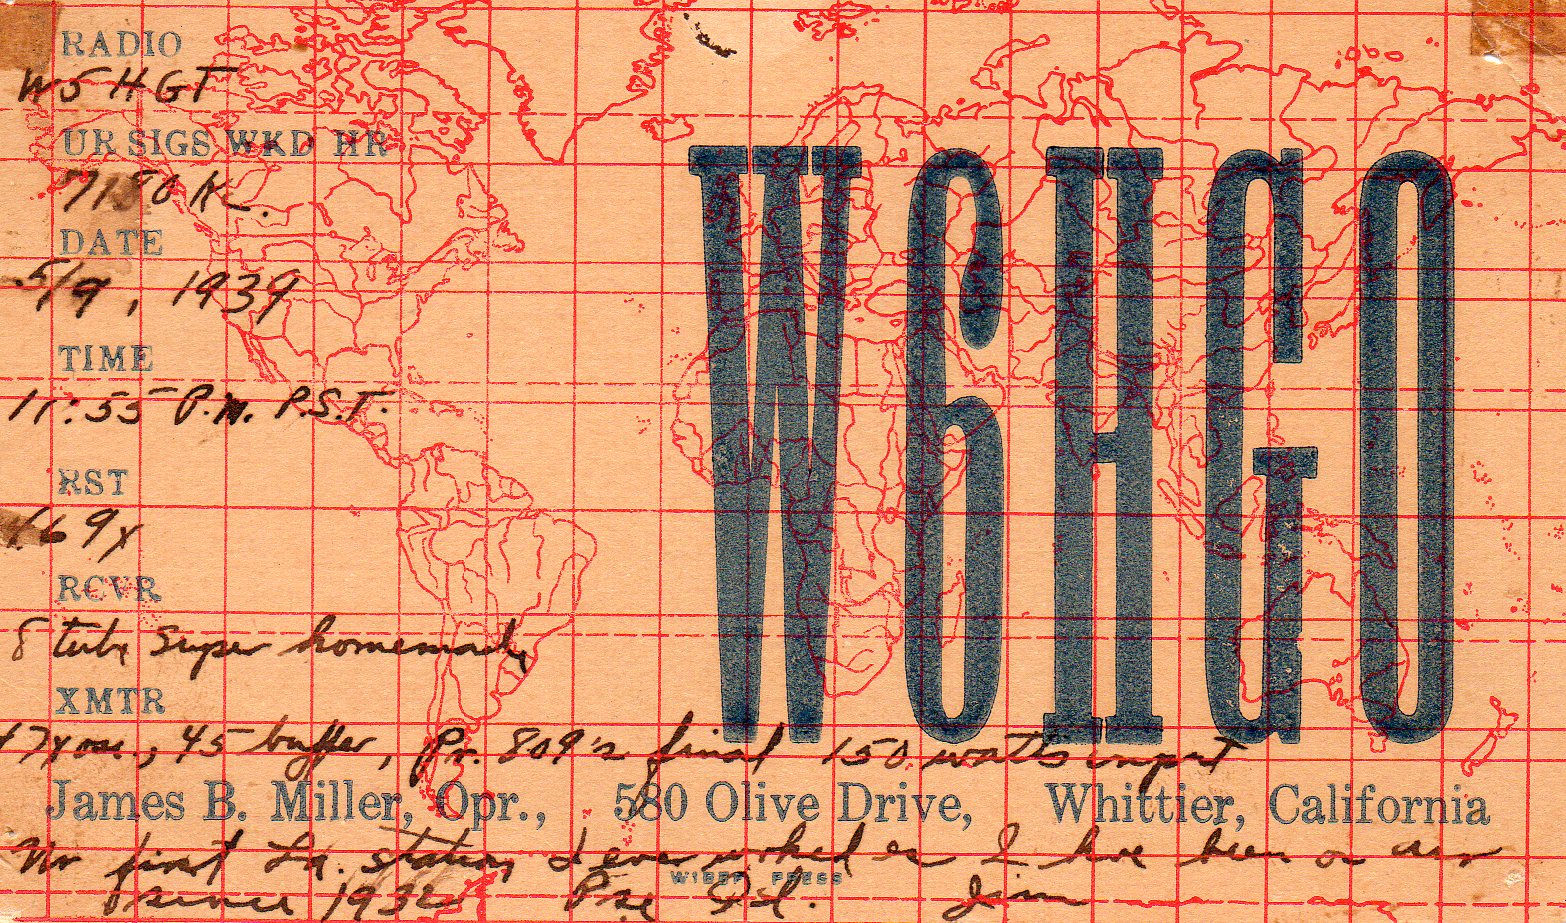 RADIO
W5HGT
UR SIGS WKD HR
7150 Kc.
DATE
5/9, 1939
TIME
11:55 P.M. P.S.T.
RST
69x
RCVR
8 tube super homemade
XMTR
47 xosc., 45 buffer, Pr. 809's final 150 watts input
W6HGO
James B. Miller, Opr., 580 Olive Drive, Whittier, California
Ur first La. station I ever worked es I have been on air
since 1932 Pse Qsl. Jim
WIBER PRESS